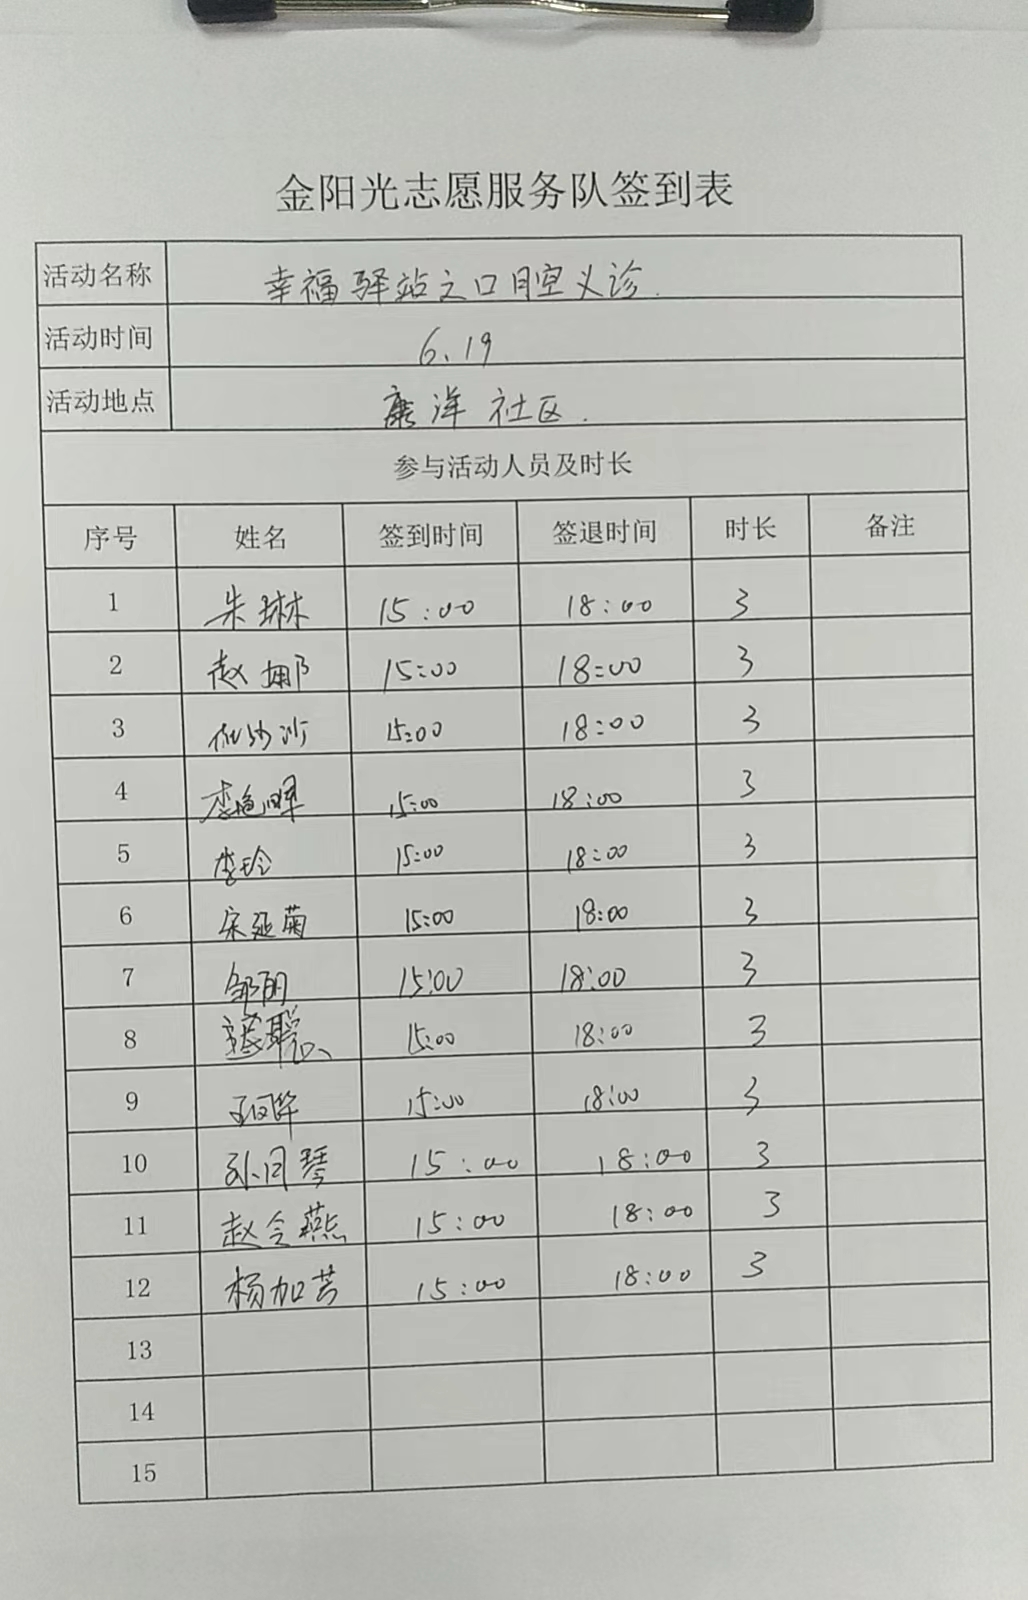 金阳光志愿服务队签到表
活动名称 幸福驿站之口腔义诊.
活动时间 6.19
活动地点 康洋社区.
参与活动人员及时长
序号 姓名 签到时间 签退时间 时长 备注
1 朱琳 15:00 18:00 3
2 赵娜 15:00 18:00 3
3 15:00 18:00 3
4 李艳晖 15:00 18:00 3
5 李玲 15:00 18:00 3
6 宋延菊 15:00 18:00 3
7 邹明 15:00 18:00 3
8 聪 15:00 18:00 3
9 15:00 18:00 3
10 孙同琴 15:00 18:00 3
11 赵令燕 15:00 18:00 3
12 杨加芳 15:00 18:00 3
13
14
15